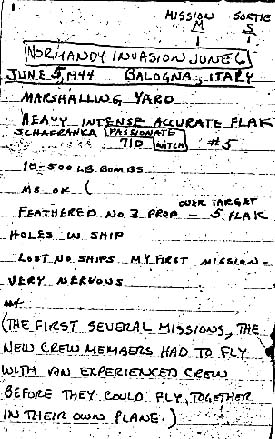 MISSION SORTIE
M S
1 1
NORMANDY INVASION JUNE 6
JUNE 5, 1944 BALOGNA, ITARY
MARSHALLING YARD
HEAVY INTENSE ACCURATE FLAK
SCHAFRANKA PASSIONATE
710 WITCH #5
10-500 LB BOMBS
MS OK (
OVER TARGET
FEATHERED NO. 3 PROP - 5 FLAK
HOLES IN SHIP
LOST NO SHIPS MY FIRST MISSION -
VERY NERVOUS
(THE FIRST SEVERAL MISSIONS, THE
NEW CREW MEMBERS HAD TO FLY
WITH AN EXPERIENCED CREW
BEFORE THEY COULD FLY TOGETHER
IN THEIR OWN PLANE.)